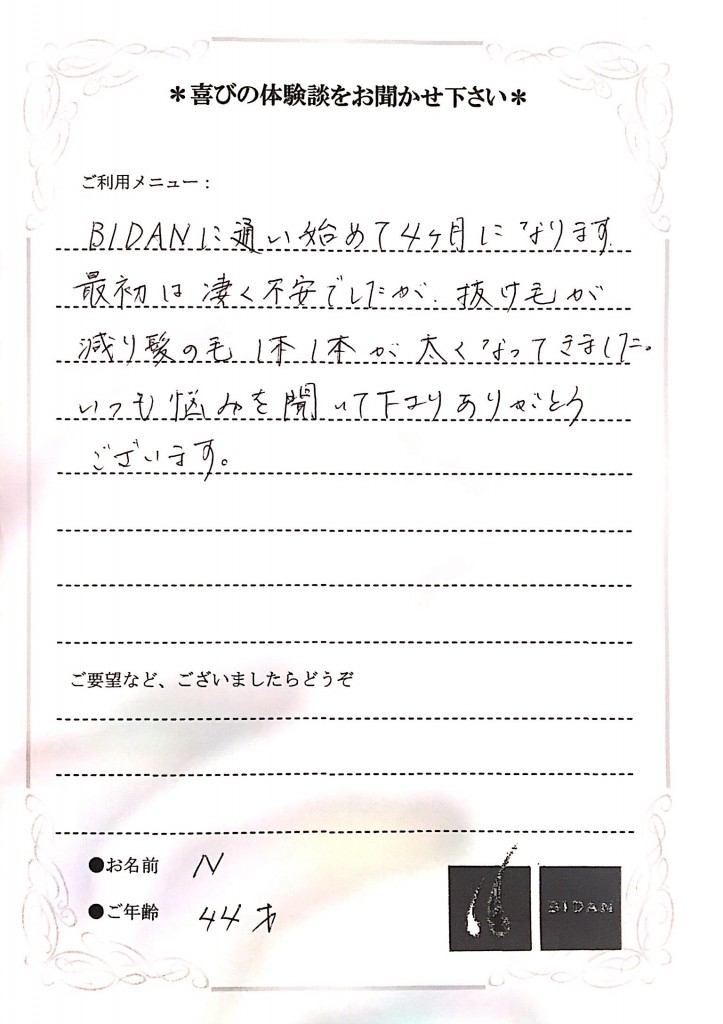 ＊喜びの体験談をお聞かせ下さい＊
ご利用メニュー：
BIDANに通い始めて4ヶ月になります
最初は凄く不安でしたが、抜け毛が
減り髪の毛1本1本が太くなってきました。
いつも悩みを聞いて下さりありがとう
ございます。
ご要望など、ございましたらどうぞ
●お名前 N
●ご年齢 44才
BIDAN